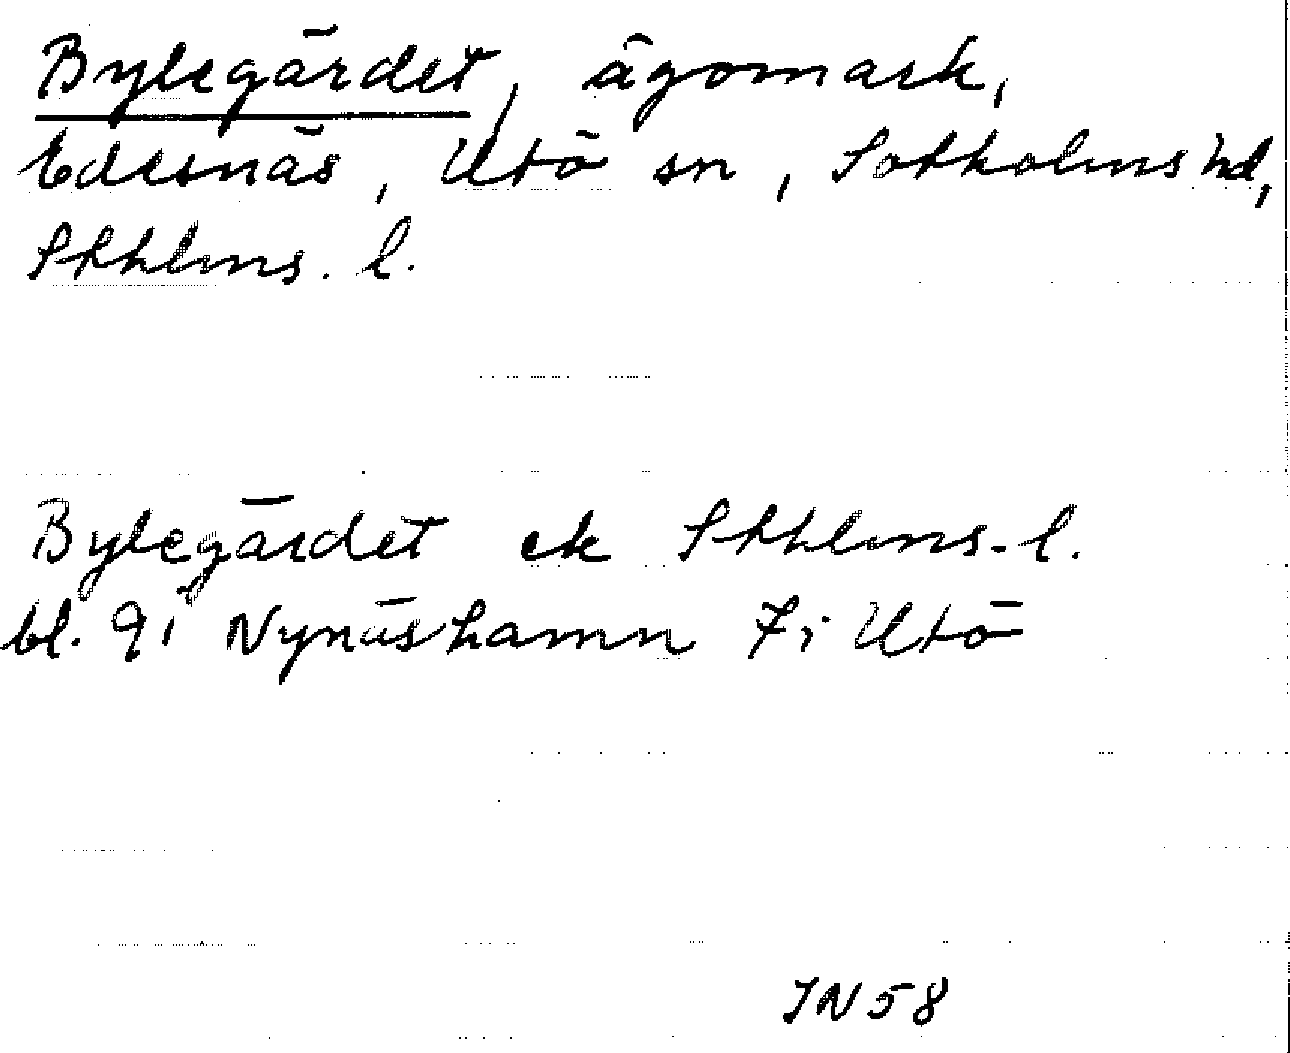 Bylegärdet, ägomark,
Edesnäs, Utö sn, Sotholms hd,
Sthlms. l.
Bylegärdet ek Sthlms-l.
bl. 91 Nynäshamn 7i Utö
IN 58